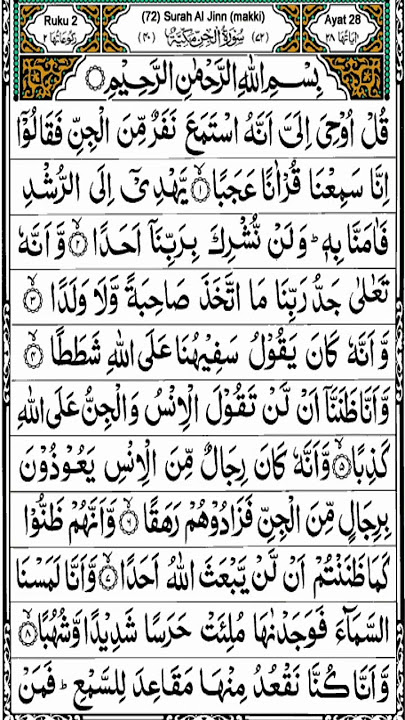 Ruku 2 (72) Surah Al Jinn (makki) Ayat 28
رکوعاتها ۲ (۴۰) سُوْرَةُ الْجِنِّ مَکِّیَّةٌ (۷۲) اٰیاتها ۲۸
بِسْمِ اللّٰهِ الرَّحْمٰنِ الرَّحِیْمِ
قُلْ اُوْحِیَ اِلَیَّ اَنَّهُ اسْتَمَعَ نَفَرٌ مِّنَ الْجِنِّ فَقَالُوْۤا
اِنَّا سَمِعْنَا قُرْاٰنًا عَجَبًا ۙ﴿۱﴾ یَّهْدِیْۤ اِلَی الرُّشْدِ
فَاٰمَنَّا بِهٖ ؕ وَلَنْ نُّشْرِكَ بِرَبِّنَاۤ اَحَدًا ۙ﴿۲﴾ وَّاَنَّهٗ
تَعٰلٰی جَدُّ رَبِّنَا مَا اتَّخَذَ صَاحِبَةً وَّلَا وَلَدًا ۙ﴿۳﴾
وَّاَنَّهٗ كَانَ یَقُوْلُ سَفِیْهُنَا عَلَی اللّٰهِ شَطَطًا ۙ﴿۴﴾
وَّاَنَّا ظَنَنَّاۤ اَنْ لَّنْ تَقُوْلَ الْاِنْسُ وَالْجِنُّ عَلَی اللّٰهِ
كَذِبًا ۙ﴿۵﴾ وَّاَنَّهٗ كَانَ رِجَالٌ مِّنَ الْاِنْسِ یَعُوْذُوْنَ
بِرِجَالٍ مِّنَ الْجِنِّ فَزَادُوْهُمْ رَهَقًا ۙ﴿۶﴾ وَّاَنَّهُمْ ظَنُّوْا
كَمَا ظَنَنْتُمْ اَنْ لَّنْ یَّبْعَثَ اللّٰهُ اَحَدًا ۙ﴿۷﴾ وَّاَنَّا لَمَسْنَا
السَّمَآءَ فَوَجَدْنٰهَا مُلِئَتْ حَرَسًا شَدِیْدًا وَّشُهُبًا ۙ﴿۸﴾
وَّاَنَّا كُنَّا نَقْعُدُ مِنْهَا مَقَاعِدَ لِلسَّمْعِ ؕ فَمَنْ